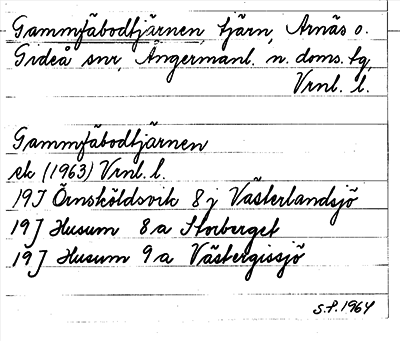 Gammfäbodtjärnen, tjärn, Arnäs o.
Gideå snr, Ångermanl. n. doms. fg,
Vrnl. l.
Gammfäbodtjärnen
ek (1963) Vrnl. l.
19I Örnsköldsvik 8j Västerlandsjö
19J Husum 8a Storberget
19J Husum 9a Västergissjö
S.P. 1964